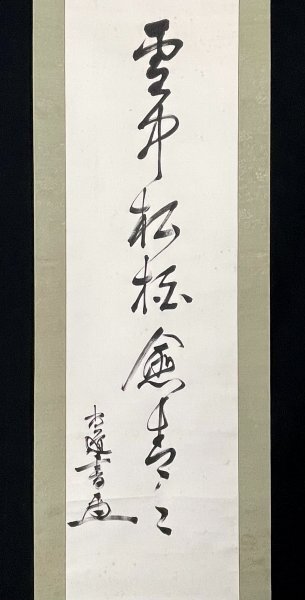 雪中松柏愈青々
書